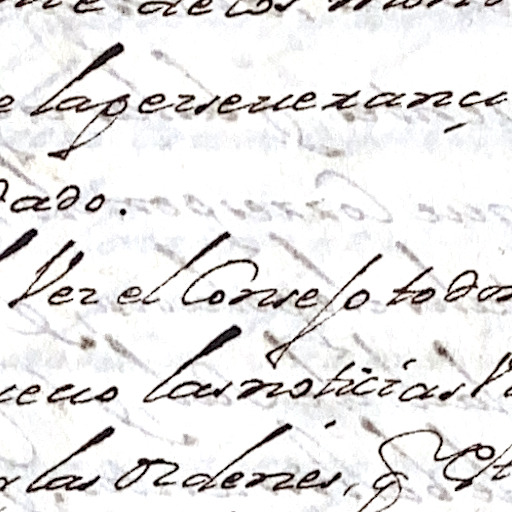 de los mon
e la perseuerançi
dado.
Ver el Consejo todo
las noticias
las Ordenes, q̃